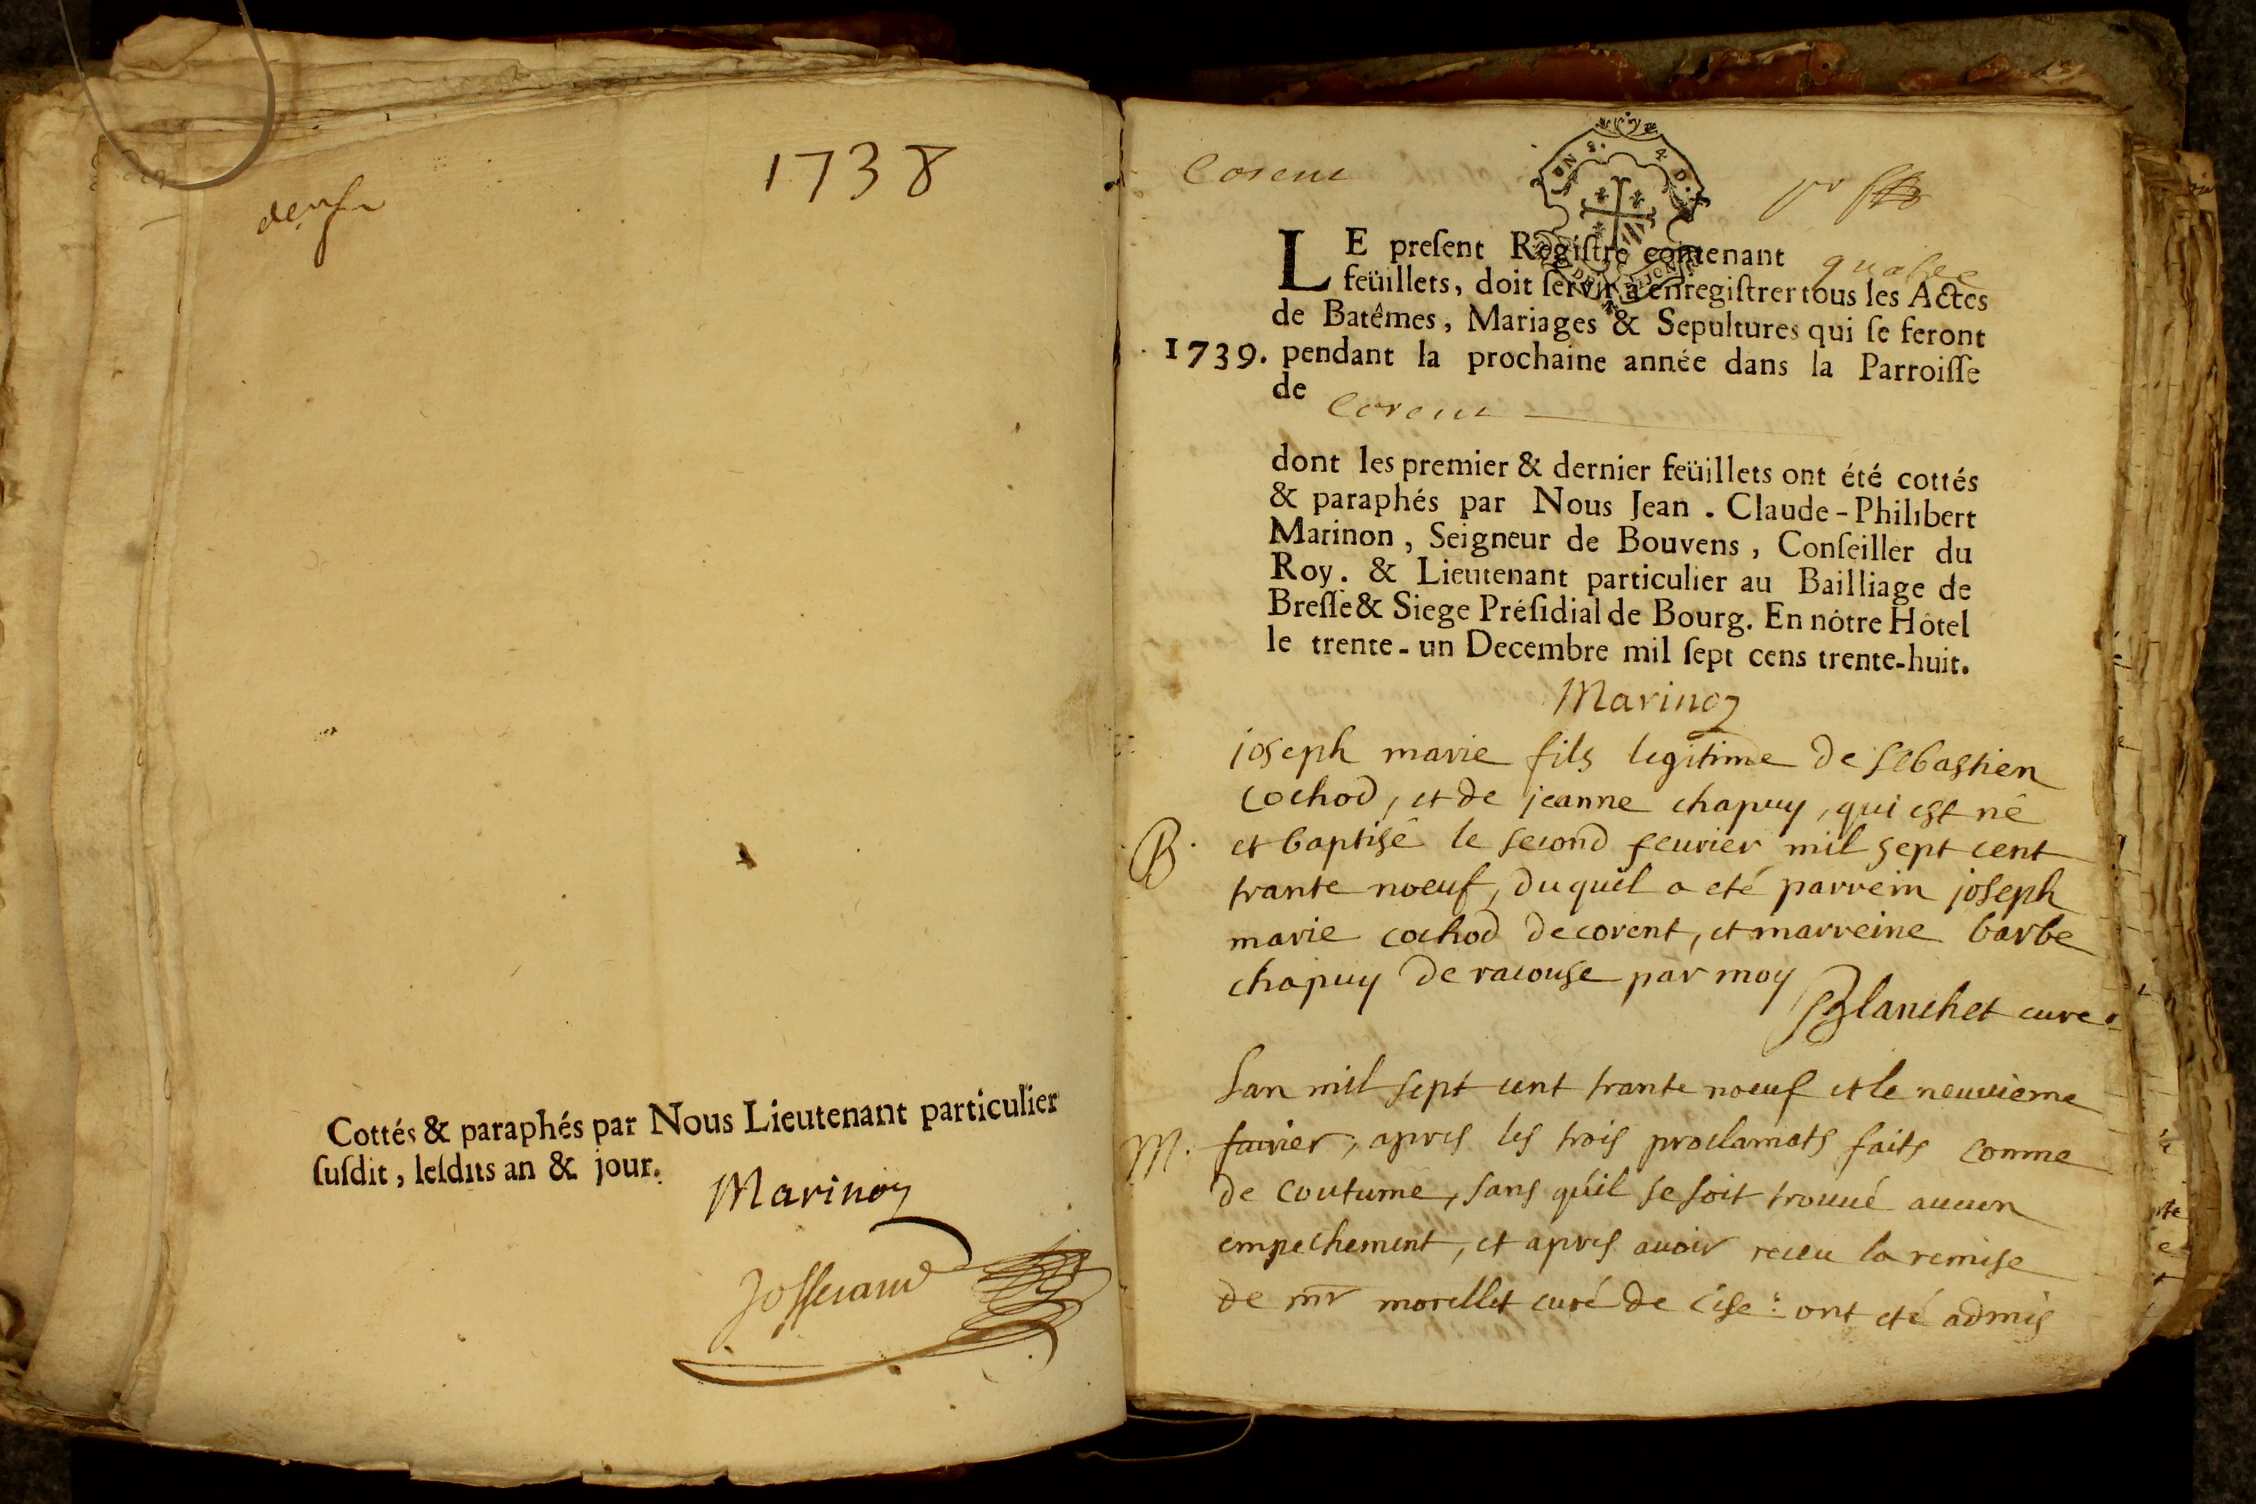 1738
Cottés & paraphés par Nous Lieutenant particulier
susdit, lesdits an & jour.
Marinon
Josserand
Corent
LE present Registre contenant quatre
feüillets, doit servir à enregistrer tous les Actes
de Batêmes, Mariages & Sepultures qui se feront
1739. pendant la prochaine année dans la Parroisse
de Corent
dont les premier & dernier feüillets ont été cottés
& paraphés par Nous Jean . Claude-Philibert
Marinon, Seigneur de Bouvens, Conseiller du
Roy. & Lieutenant particulier au Bailliage de
Bresse & Siege Présidial de Bourg. En nôtre Hôtel
le trente-un Decembre mil sept cens trente-huit.
Marinon
joseph marie fils legitime de sebastien
cochod, et de jeanne chapuy, qui est né
B. et baptisé le second feuvier mil sept cent
trante noeuf, duquel a eté parrein joseph
marie cochod de corent, et marreine barbe
chapuy de racouse par moy
Blanchet curé
Lan mil sept cent trante noeuf et le neuvieme
M. favrier, apres les trois proclamats faits comme
de coutume, sans qu'il se soit trouué aucun
empechement, et apres auoir receu la remise
de mr morellet curé de cise: ont eté admis